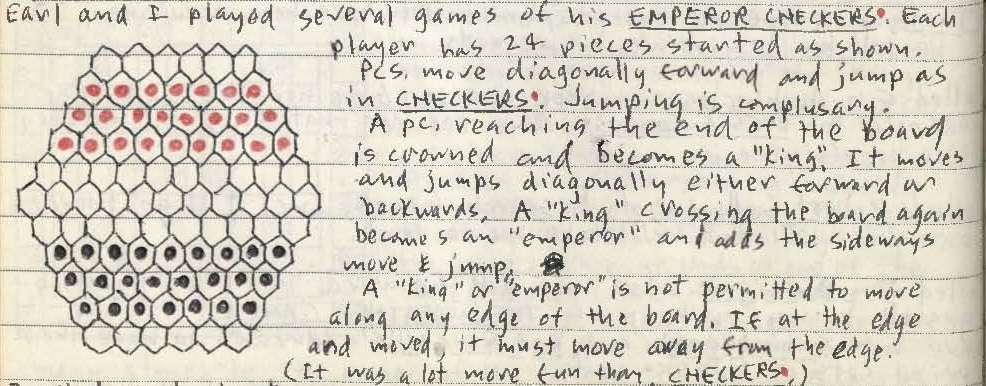 Earl and I played several games of his EMPEROR CHECKERS. Each
player has 24 pieces started as shown.
Pcs. move diagonally forward and jump as
in CHECKERS. Jumping is complusary.
A pc. reaching the end of the board
is crowned and becomes a "king". It moves
and jumps diagonally either forward or
backwards. A "king" crossing the board again
becomes an "emperor" and adds the sideways
move & jump.
A "king" or "emperor" is not permitted to move
along any edge of the board. If at the edge
and moved, it must move away from the edge.
(It was a lot more fun than CHECKERS.)